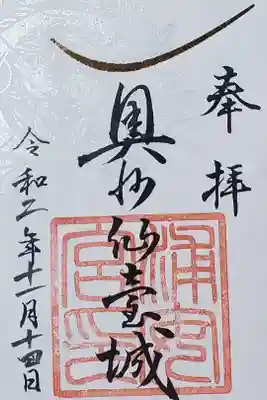 奉拝
奥州仙臺城
令和二年十一月十四日